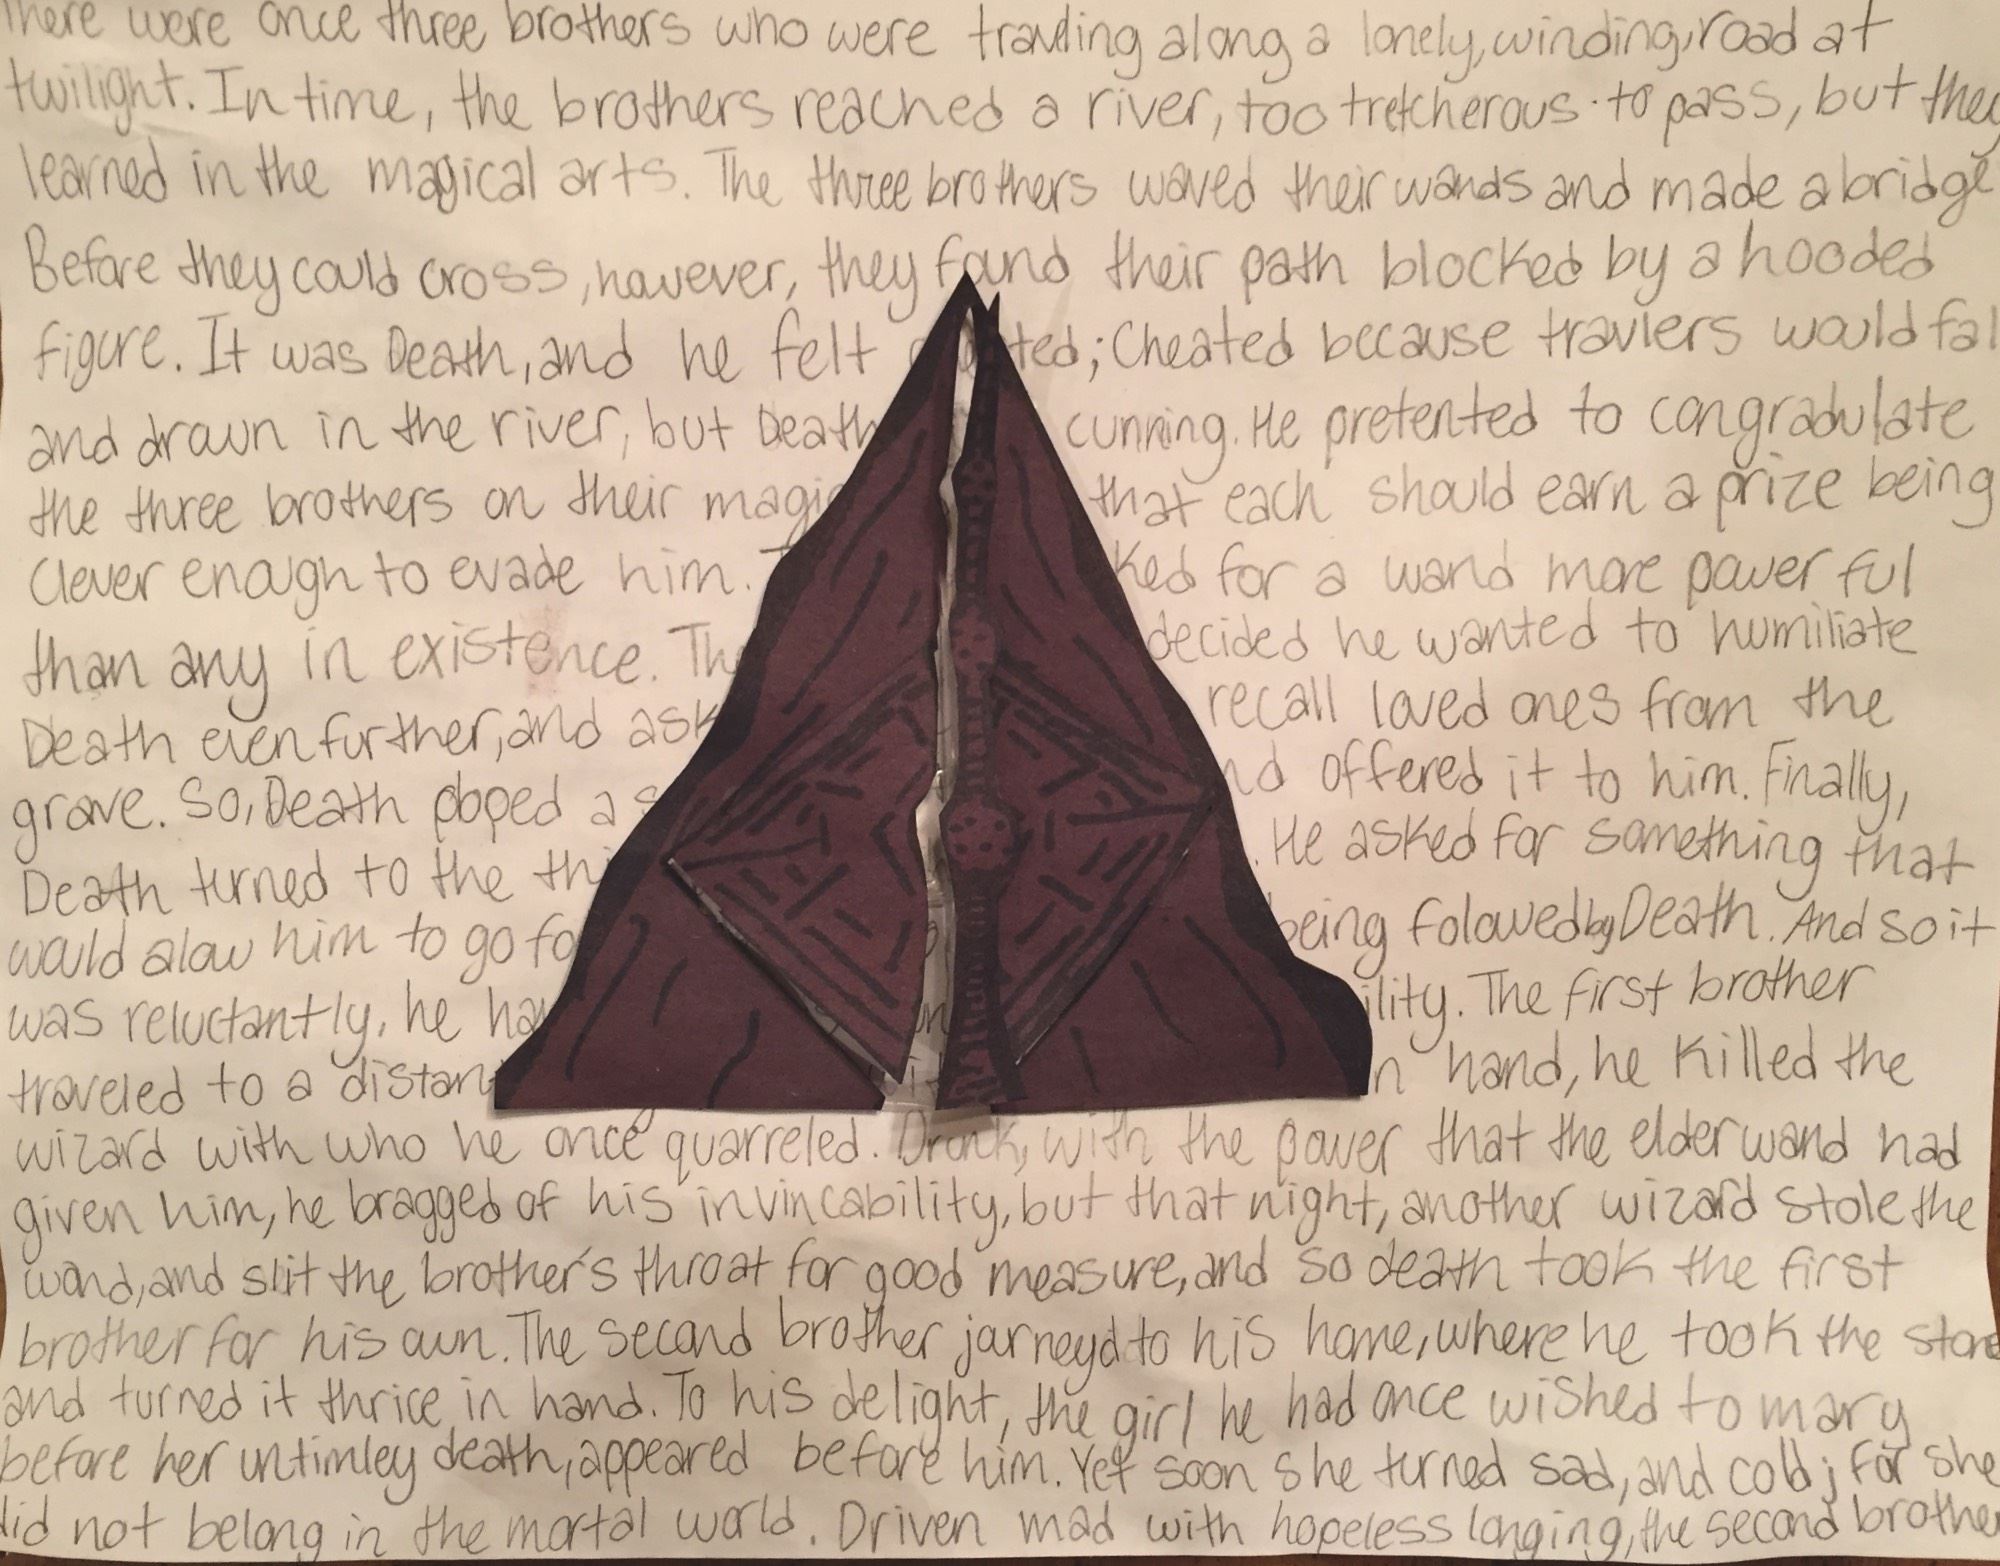 There were once three brothers who were traveling along a lonely, winding, road at
twilight. In time, the brothers reached a river, too tretcherous to pass, but they
learned in the magical arts. The three brothers waved their wands and made a bridge
Before they could cross, however, they found their path blocked by a hooded
figure. It was Death, and he felt ted; Cheated because travlers would fal
and drown in the river, but Death cunning. He pretented to congradulate
the three brothers on their magic that each should earn a prize being
Clever enough to evade him. ked for a wand more powerful
than any in existence. The decided he wanted to humiliate
Death even further, and ask recall loved ones from the
grave. So, Death ploped a s nd offered it to him. Finally,
Death turned to the thi . He asked for something that
would alow him to go fo being folowed by Death. And so it
was reluctantly, he han ility. The first brother
traveled to a distant n hand, he killed the
wizard with who he once quarreled. Drunk, with the power that the elder wand had
given him, he bragged of his invincability, but that night, another wizard stole the
wand, and slit the brother's throat for good measure, and so death took the first
brother for his own. The second brother jorneyd to his home, where he took the stone
and turned it thrice in hand. To his delight, the girl he had once wished to mary
before her untimley death, appeared before him. Yet soon she turned sad, and cold; for she
did not belong in the mortal world. Driven mad with hopeless longing, the second brother